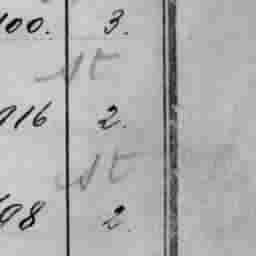 100. 3.
st
016 2.
st
08 2.